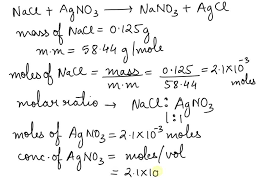 NaCl + AgNO3 ⟶ NaNO3 + AgCl
mass of NaCl = 0.125g
m.m = 58.44 g/mole
moles of NaCl = mass/m.m = 0.125/58.44 = 2.1×10^-3 moles
molar ratio → NaCl : AgNO3
1 : 1
moles of AgNO3 = 2.1×10^-3 moles
conc. of AgNO3 = moles/vol
= 2.1×10